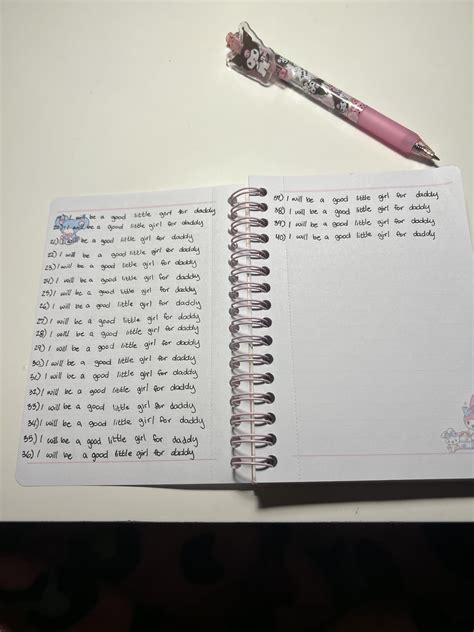 I will be a good little girl for daddy
20) I will be a good little girl for daddy
21) I will be a good little girl for daddy
22) I will be a good little girl for daddy
23) I will be a good little girl for daddy
24) I will be a good little girl for daddy
25) I will be a good little girl for daddy
26) I will be a good little girl for daddy
27) I will be a good little girl for daddy
28) I will be a good little girl for daddy
29) I will be a good little girl for daddy
30) I will be a good little girl for daddy
31) I will be a good little girl for daddy
32) I will be a good little girl for daddy
33) I will be a good little girl for daddy
34) I will be a good little girl for daddy
35) I will be a good little girl for daddy
36) I will be a good little girl for daddy
37) I will be a good little girl for daddy
38) I will be a good little girl for daddy
39) I will be a good little girl for daddy
40) I will be a good little girl for daddy